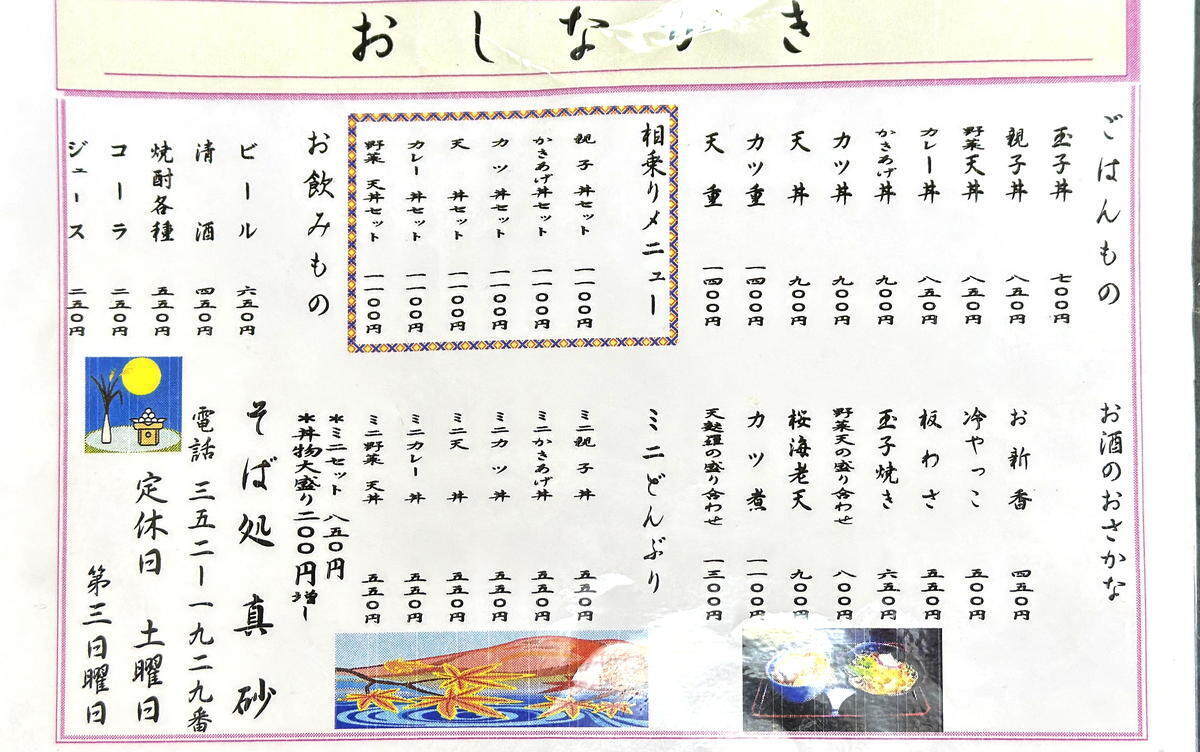 おしながき
ごはんもの
玉子丼 七〇〇円
親子丼 八五〇円
野菜天丼 八五〇円
カレー丼 八五〇円
かきあげ丼 九〇〇円
カツ丼 九〇〇円
天丼 九〇〇円
カツ重 一四〇〇円
天重 一四〇〇円
相乗りメニュー
親子丼セット 一一〇〇円
かきあげ丼セット 一一〇〇円
カツ丼セット 一一〇〇円
天丼セット 一一〇〇円
カレー丼セット 一一〇〇円
野菜天丼セット 一一〇〇円
お飲みもの
ビール 六五〇円
清酒 四五〇円
焼酎各種 五五〇円
コーラ 二五〇円
ジュース 二五〇円
お酒のおさかな
お新香 四五〇円
冷やっこ 五〇〇円
板わさ 五五〇円
玉子焼き 六五〇円
野菜天の盛り合わせ 八〇〇円
桜海老天 九〇〇円
カツ煮 一一〇〇円
天麩羅の盛り合わせ 一三〇〇円
ミニどんぶり
ミニ親子丼 五五〇円
ミニかきあげ丼 五五〇円
ミニカツ丼 五五〇円
ミニ天丼 五五〇円
ミニカレー丼 五五〇円
ミニ野菜天丼 五五〇円
＊ミニセット 八五〇円
＊丼物大盛り二〇〇円増し
そば処 真砂
電話 三五二ー一九二九番
定休日 土曜日
第三日曜日